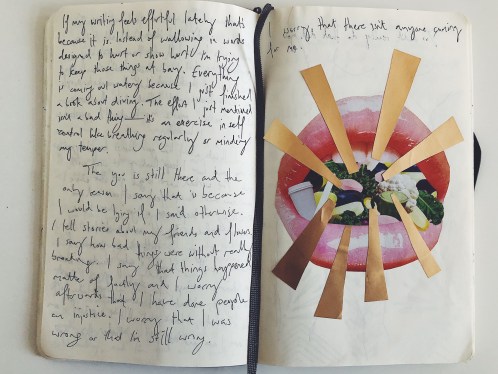 If my writing feels effortful lately that's
because it is. Instead of wallowing in words
designed to hurt or show hurt I'm trying
to keep those things at bay. Everything
is coming out watery because I just finished
a book about diving. The effort I just mentioned
isn't a bad thing — it's an exercise in self
control like breathing regularly or minding
my temper.
The you is still there and the
only reason I say that is because
I would be lying if I said otherwise.
I tell stories about my friends and
I say how bad things were without really
I say that things happened
matter of factly and I worry
afterwards that I have done people
an injustice. I worry that I was
wrong or that I'm still wrong.
I worry that there isn't anyone
for me.